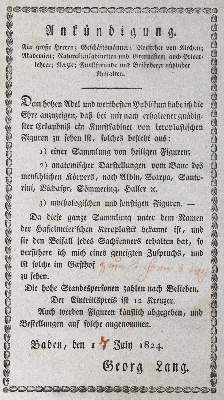 Ankündigung.
Für große Herren; Geschäftsmänner; Vorsteher von Kirchen;
Akademien; Naturalienkabineten und Gymnasien; auch Privat-
lehrer; Aerzte; Kunstfreunde und Besitzer
Dem hohen Adel und werthesten Publikum habe ich die
Ehre anzuzeigen, daß bei mir nach erhaltener gnädig-
ster Erlaubniß ein Kunstkabinet von ceroplastischen
Figuren zu sehen ist, solches besteht aus:
1) einer Sammlung von heiligen Figuren;
2) anatomischer Darstellungen vom Baue des
menschlichen Körpers, nach Albin, Scarpa, Santo-
rini, Sömmering, Haller ꝛc.
3) mythologischen und sonstigen Figuren. —
Da diese ganze Sammlung unter dem Namen
der Haselmeier'schen Ceroplastik bekannt ist, und
sie den Beifall jedes Sachkenners erhalten hat, so
versichere ich mich eines geneigten Zuspruchs, und
ist solche im Gasthof
zu sehen.
Die hohe Standespersonen zahlen nach Belieben.
Der Eintrittspreis ist 12 Kreuzer.
Auch werden Figuren käuflich abgegeben, und
Bestellungen auf solche angenommen.
Baden, den July 1824.
Georg Lang.